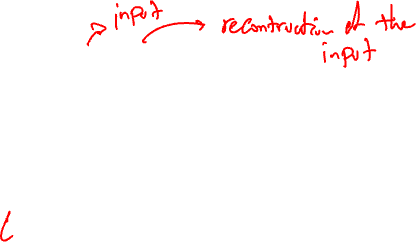 input
recontruction of the
input